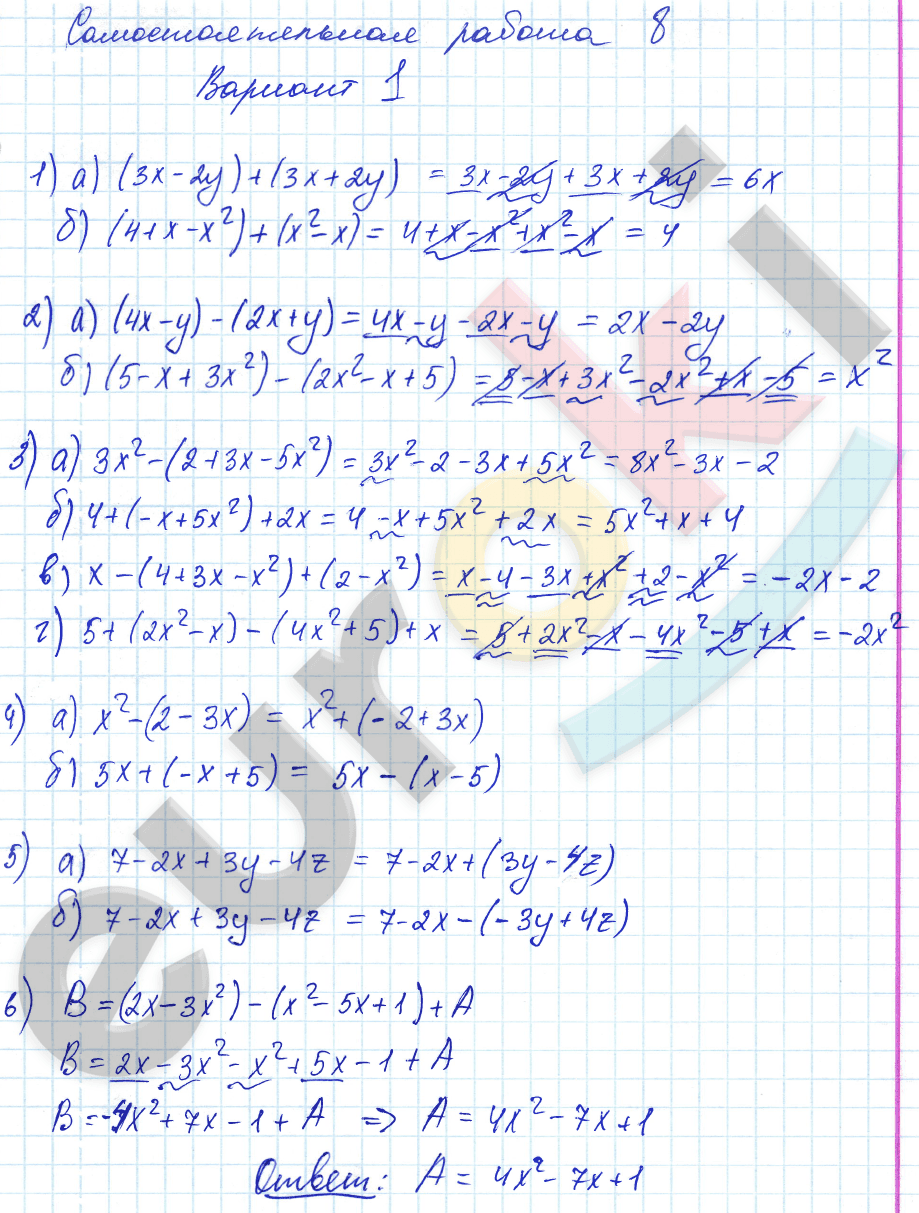 Самостоятельная работа 8
Вариант 1
1) а) (3x-2y)+(3x+2y) = 3x-2y+3x+2y = 6x
б) (4+x-x²)+(x²-x) = 4+x-x²+x²-x = 4
2) а) (4x-y)-(2x+y) = 4x-y-2x-y = 2x-2y
б) (5-x+3x²)-(2x²-x+5) = 5-x+3x²-2x²+x-5 = x²
3) а) 3x²-(2+3x-5x²) = 3x²-2-3x+5x² = 8x²-3x-2
б) 4+(-x+5x²)+2x = 4-x+5x²+2x = 5x²+x+4
в) x-(4+3x-x²)+(2-x²) = x-4-3x+x²+2-x² = -2x-2
г) 5+(2x²-x)-(4x²+5)+x = 5+2x²-x-4x²-5+x = -2x²
4) а) x²-(2-3x) = x²+(-2+3x)
б) 5x+(-x+5) = 5x-(x-5)
5) а) 7-2x+3y-4z = 7-2x+(3y-4z)
б) 7-2x+3y-4z = 7-2x-(-3y+4z)
6) B=(2x-3x²)-(x²-5x+1)+A
B=2x-3x²-x²+5x-1+A
B=-4x²+7x-1+A => A=4x²-7x+1
Ответ: A=4x²-7x+1
euroki